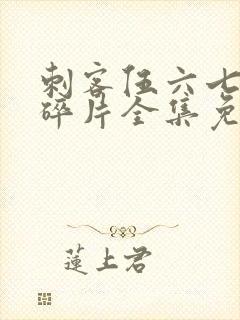 刺客伍六七
碎片全集免
蓮上君